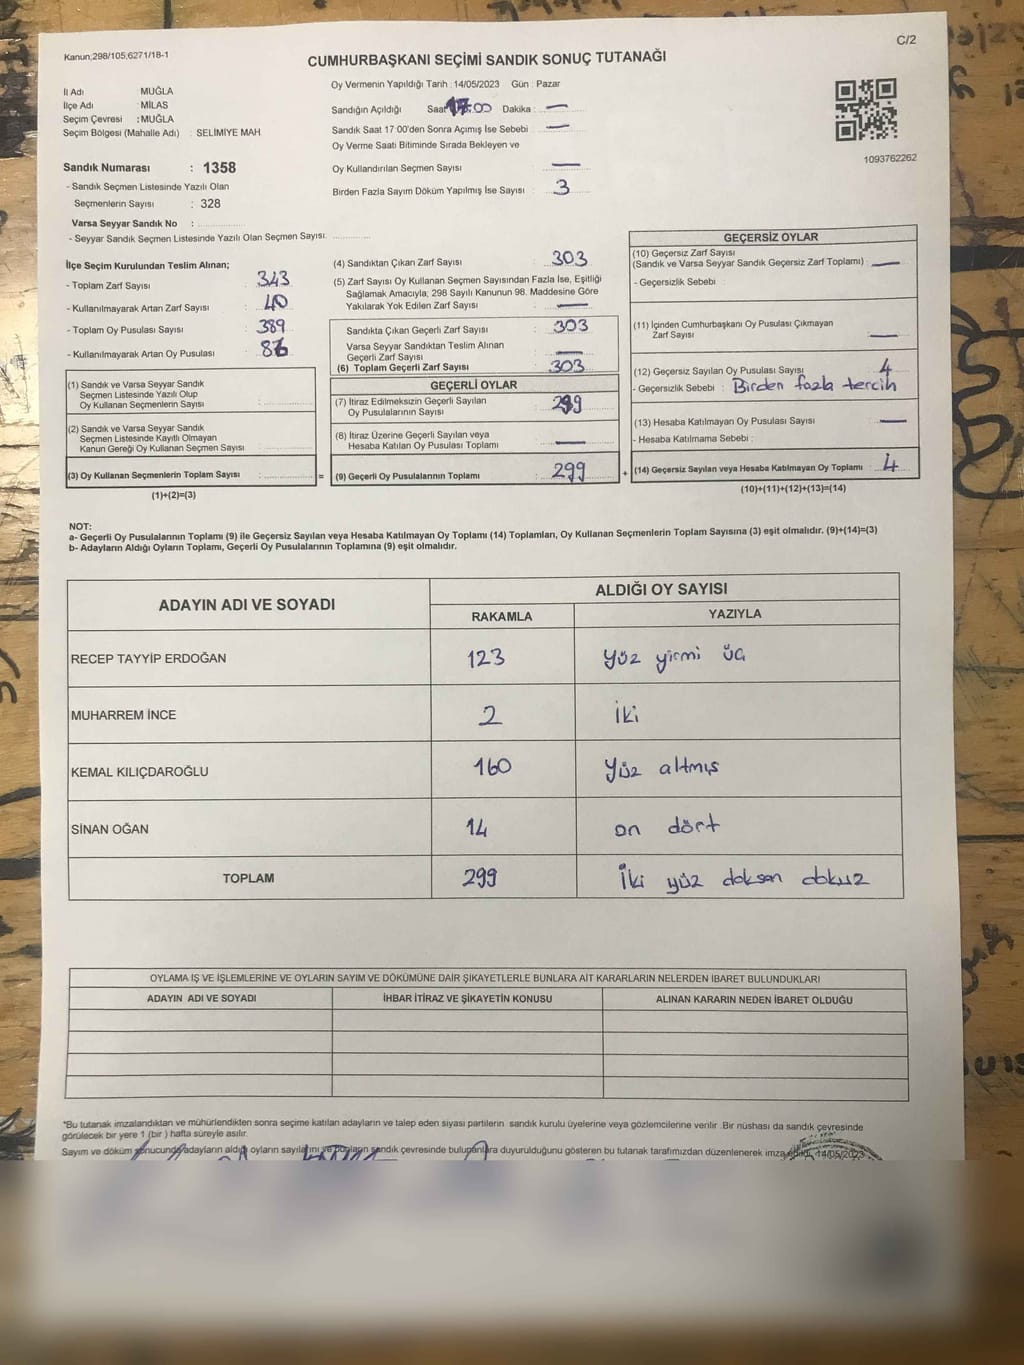 Kanun;298/105;6271/18-1
C/2
CUMHURBAŞKANI SEÇİMİ SANDIK SONUÇ TUTANAĞI
İl Adı MUĞLA
İlçe Adı : MİLAS
Seçim Çevresi : MUĞLA
Seçim Bölgesi (Mahalle Adı) : SELİMİYE MAH
Sandık Numarası : 1358
- Sandık Seçmen Listesinde Yazılı Olan
Seçmenlerin Sayısı : 328
Varsa Seyyar Sandık No :
- Seyyar Sandık Seçmen Listesinde Yazılı Olan Seçmen Sayısı:
Oy Vermenin Yapıldığı Tarih : 14/05/2023 Gün : Pazar
Sandığın Açıldığı Saat 17.00 Dakika : —
Sandık Saat 17:00'den Sonra Açımış İse Sebebi : —
Oy Verme Saati Bitiminde Sırada Bekleyen ve
Oy Kullandırılan Seçmen Sayısı —
Birden Fazla Sayım Döküm Yapılmış İse Sayısı : 3
1093762262
İlçe Seçim Kurulundan Teslim Alınan;
- Toplam Zarf Sayısı : 343
- Kullanılmayarak Artan Zarf Sayısı : 40
- Toplam Oy Pusulası Sayısı : 389
- Kullanılmayarak Artan Oy Pusulası : 86
(1) Sandık ve Varsa Seyyar Sandık
Seçmen Listesinde Yazılı Olup
Oy Kullanan Seçmenlerin Sayısı :
(2) Sandık ve Varsa Seyyar Sandık
Seçmen Listesinde Kayıtlı Olmayan
Kanun Gereği Oy Kullanan Seçmen Sayısı :
(3) Oy Kullanan Seçmenlerin Toplam Sayısı : =
(1)+(2)=(3)
(4) Sandıktan Çıkan Zarf Sayısı : 303
(5) Zarf Sayısı Oy Kullanan Seçmen Sayısından Fazla İse, Eşitliği
Sağlamak Amacıyla; 298 Sayılı Kanunun 98. Maddesine Göre
Yakılarak Yok Edilen Zarf Sayısı : —
Sandıkta Çıkan Geçerli Zarf Sayısı : 303
Varsa Seyyar Sandıktan Teslim Alınan
Geçerli Zarf Sayısı : —
(6) Toplam Geçerli Zarf Sayısı : 303
GEÇERLİ OYLAR
(7) İtiraz Edilmeksizin Geçerli Sayılan
Oy Pusulalarının Sayısı : 299
(8) İtiraz Üzerine Geçerli Sayılan veya
Hesaba Katılan Oy Pusulası Toplamı : —
(9) Geçerli Oy Pusulalarının Toplamı : 299 +
GEÇERSİZ OYLAR
(10) Geçersiz Zarf Sayısı
(Sandık ve Varsa Seyyar Sandık Geçersiz Zarf Toplamı) : —
- Geçersizlik Sebebi :
(11) İçinden Cumhurbaşkanı Oy Pusulası Çıkmayan
Zarf Sayısı : —
(12) Geçersiz Sayılan Oy Pusulası Sayısı : 4
- Geçersizlik Sebebi : Birden fazla tercih
(13) Hesaba Katılmayan Oy Pusulası Sayısı : —
- Hesaba Katılmama Sebebi :
(14) Geçersiz Sayılan veya Hesaba Katılmayan Oy Toplamı : 4
(10)+(11)+(12)+(13)=(14)
NOT:
a- Geçerli Oy Pusulalarının Toplamı (9) ile Geçersiz Sayılan veya Hesaba Katılmayan Oy Toplamı (14) Toplamları, Oy Kullanan Seçmenlerin Toplam Sayısına (3) eşit olmalıdır. (9)+(14)=(3)
b- Adayların Aldığı Oyların Toplamı, Geçerli Oy Pusulalarının Toplamına (9) eşit olmalıdır.
ADAYIN ADI VE SOYADI
ALDIĞI OY SAYISI
RAKAMLA YAZIYLA
RECEP TAYYİP ERDOĞAN 123 Yüz yirmi üç
MUHARREM İNCE 2 İki
KEMAL KILIÇDAROĞLU 160 Yüz altmış
SİNAN OĞAN 14 on dört
TOPLAM 299 İki yüz doksan dokuz
OYLAMA İŞ VE İŞLEMLERİNE VE OYLARIN SAYIM VE DÖKÜMÜNE DAİR ŞİKAYETLERLE BUNLARA AİT KARARLARIN NELERDEN İBARET BULUNDUKLARI
ADAYIN ADI VE SOYADI İHBAR İTİRAZ VE ŞİKAYETİN KONUSU ALINAN KARARIN NEDEN İBARET OLDUĞU
*Bu tutanak imzalandıktan ve mühürlendikten sonra seçime katılan adayların ve talep eden siyasi partilerin sandık kurulu üyelerine veya gözlemcilerine verilir .Bir nüshası da sandık çevresinde
görülecek bir yere 1 (bir ) hafta süreyle asılır.
Sayım ve döküm sonucunda adayların aldığı oyların sayılarını ve bunların sandık çevresinde bulunanlara duyurulduğunu gösteren bu tutanak tarafımızdan düzenlenerek imza edildi. 14/05/2023